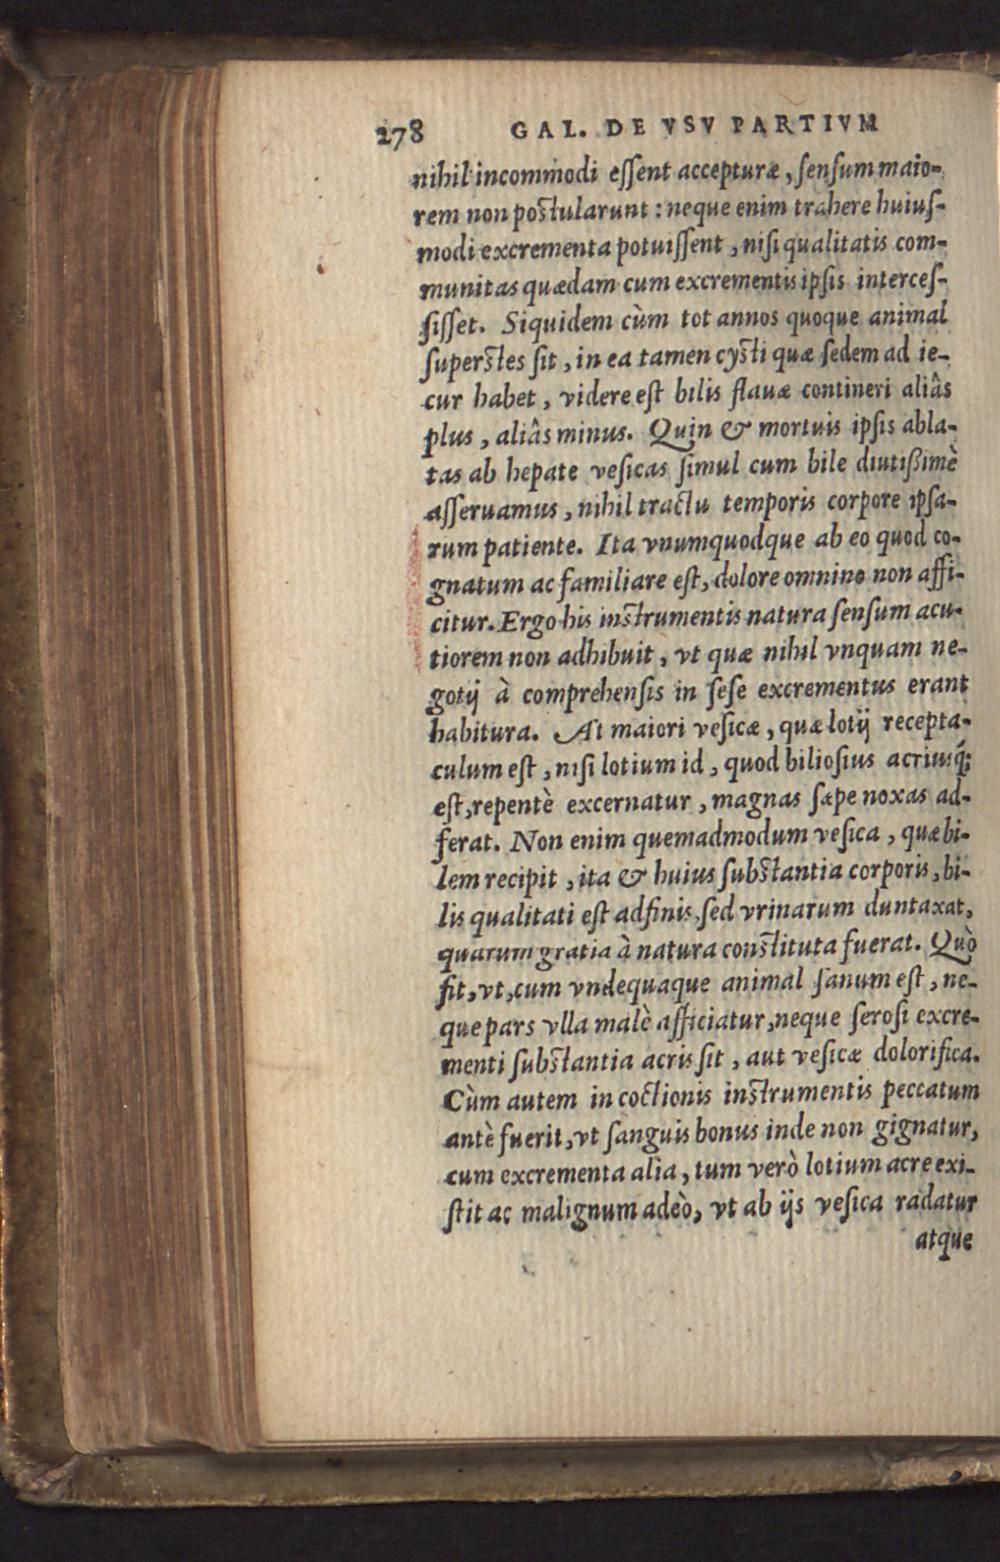 278 GAL. DE VSV PARTIVM
nihil incommodi eſſent accepturæ, ſenſum maio-
rem non poſtularunt: neque enim trahere huiuſ-
modi excrementa potuiſſent, niſi qualitatis com-
munitas quædam cum excrementis ipſis interceſ-
ſiſſet. Siquidem cùm tot annos quoque animal
ſuperſtes ſit, in ea tamen cyſti quæ ſedem ad ie-
cur habet, videre eſt bilis flauæ contineri aliâs
plus, aliâs minus. Quin & mortuis ipſis abla-
tas ab hepate veſicas ſimul cum bile diutiſsimè
aſſeruamus, nihil tractu temporis corpore ipſa-
rum patiente. Ita vnumquodque ab eo quod co-
gnatum ac familiare eſt, dolore omnino non affi-
citur. Ergo his inſtrumentis natura ſenſum acu-
tiorem non adhibuit, vt quæ nihil vnquam ne-
gotij à comprehenſis in ſeſe excrementus erant
habitura. At maiori veſicæ, quæ lotij recepta-
culum eſt, niſi lotium id, quod bilioſius acriusq́;
eſt, repentè excernatur, magnas ſæpe noxas ad-
ferat. Non enim quemadmodum veſica, quæ bi-
lem recipit, ita & huius ſubſtantia corporis, bi-
lis qualitati eſt adfinis, ſed vrinarum duntaxat,
quarum gratia à natura conſtituta fuerat. Quò
fit, vt, cum vndequaque animal ſanum eſt, ne-
que pars vlla malè afficiatur, neque ſeroſi excre-
menti ſubſtantia acris ſit, aut veſicæ dolorifica.
Cùm autem in coctionis inſtrumentis peccatum
antè fuerit, vt ſanguis bonus inde non gignatur,
cum excrementa alia, tum verò lotium acre exi-
ſtit ac malignum adeò, vt ab ijs veſica radatur
atque